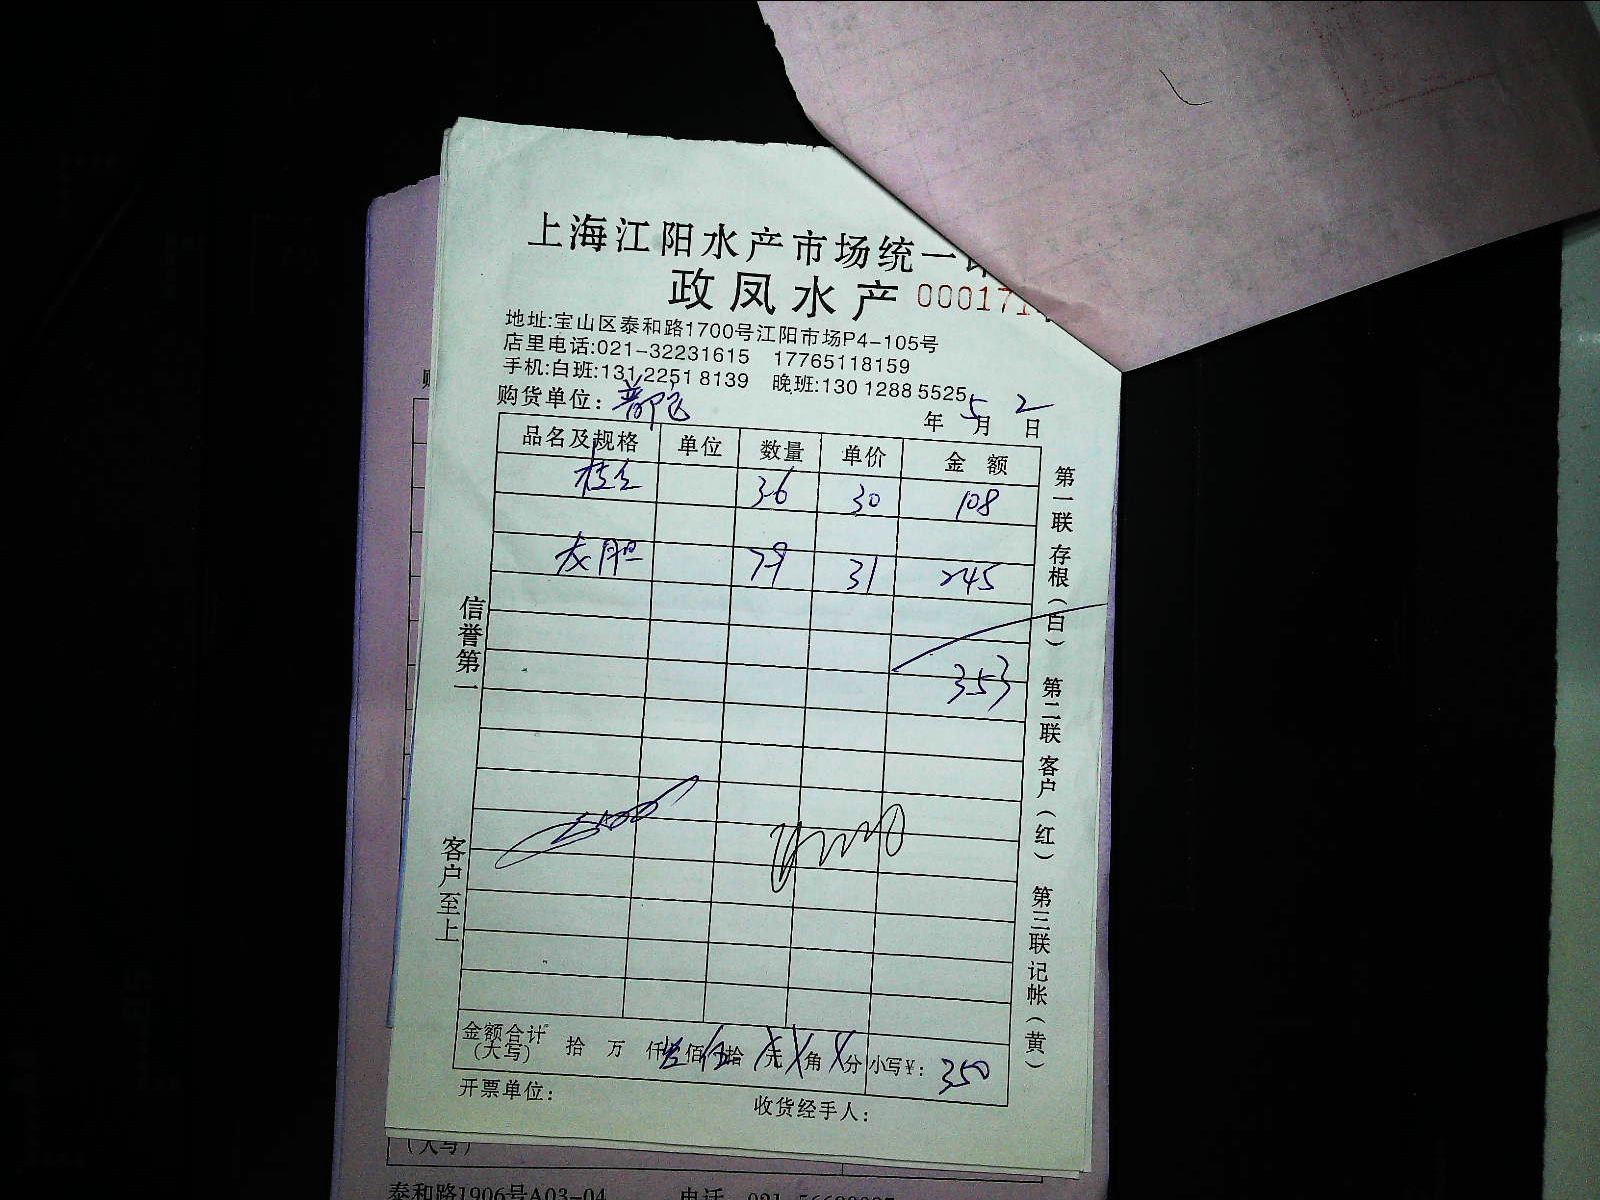 上海江阳水产市场统一
政凤水产 000171
地址:宝山区泰和路1700号江阳市场P4-105号
店里电话:021-32231615 17765118159
手机:白班:131 2251 8139 晚班:130 1288 5525
购货单位:
年 5月 2日
品名及规格 单位 数量 单价 金额
36 30 108
龙胆 79 31 245
353
金额合计(大写) 拾 万 仟 叁佰 伍拾 元 角 分 小写¥: 350
开票单位: 收货经手人:
信誉第一
客户至上
第一联 存根(白) 第二联 客户(红) 第三联 记帐(黄)
(大写)
泰和路1906号A03-04 电话